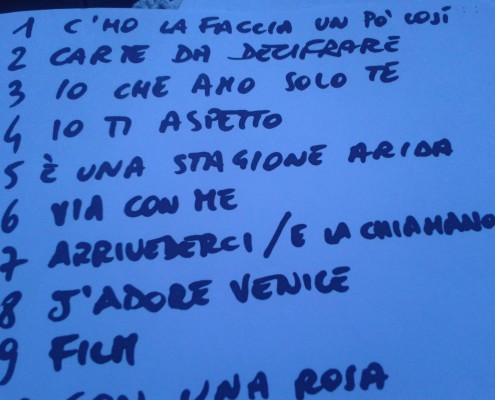 1 C'HO LA FACCIA UN PO' COSÍ
2 CARTE DA DECIFRARE
3 IO CHE AMO SOLO TE
4 IO TI ASPETTO
5 È UNA STAGIONE ARIDA
6 VIA CON ME
7 ARRIVEDERCI / E LA CHIAMANO
8 J'ADORE VENICE
9 FILM
CON UNA ROSA